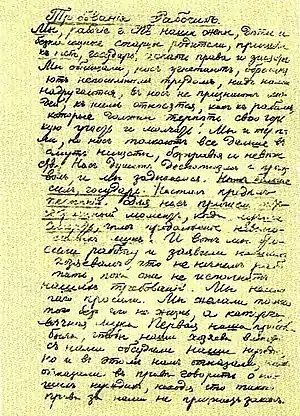 Требованія Рабочихъ.
Мы, рабочіе г. наши жены, дѣти и
старцы родители, пришли
къ тебѣ, государь, искать правды и защиты
Мы обнищали, насъ угнетаютъ, обременя
ютъ непосильнымъ трудомъ, надъ нами
надругаются, въ насъ не признаютъ лю
дей, къ намъ относятся, какъ къ рабамъ,
которые должны терпѣть свою горь
кую участь и молчать. Мы и терпѣ
ли, но насъ толкаютъ все дальше въ
омутъ нищеты, безправія и невѣже
ства. Насъ душитъ деспотизмъ и произ
волъ и мы задыхаемся. Нѣтъ больше
силъ, государь. Насталъ предѣлъ
терпѣнію. Для насъ пришелъ тотъ
страшный моментъ, когда лучше
смерть, чѣмъ продолженіе невыно
симыхъ мукъ. И вотъ мы бро
сили работу и заявили нашимъ
хозяевамъ, что не начнемъ рабо
тать, пока они не исполнятъ
нашихъ требованій. Мы не мно
гаго просили. Мы желали только
того, безъ чего не жизнь, а каторга,
вѣчная мука. Первая наша просьба
была, чтобы наши хозяева вмѣстѣ
съ нами обсудили наши нужды,
но и въ этомъ намъ отказали, намъ
отказали въ правѣ говорить о на
шихъ нуждахъ, находя, что такого
права за нами не признаетъ законъ.